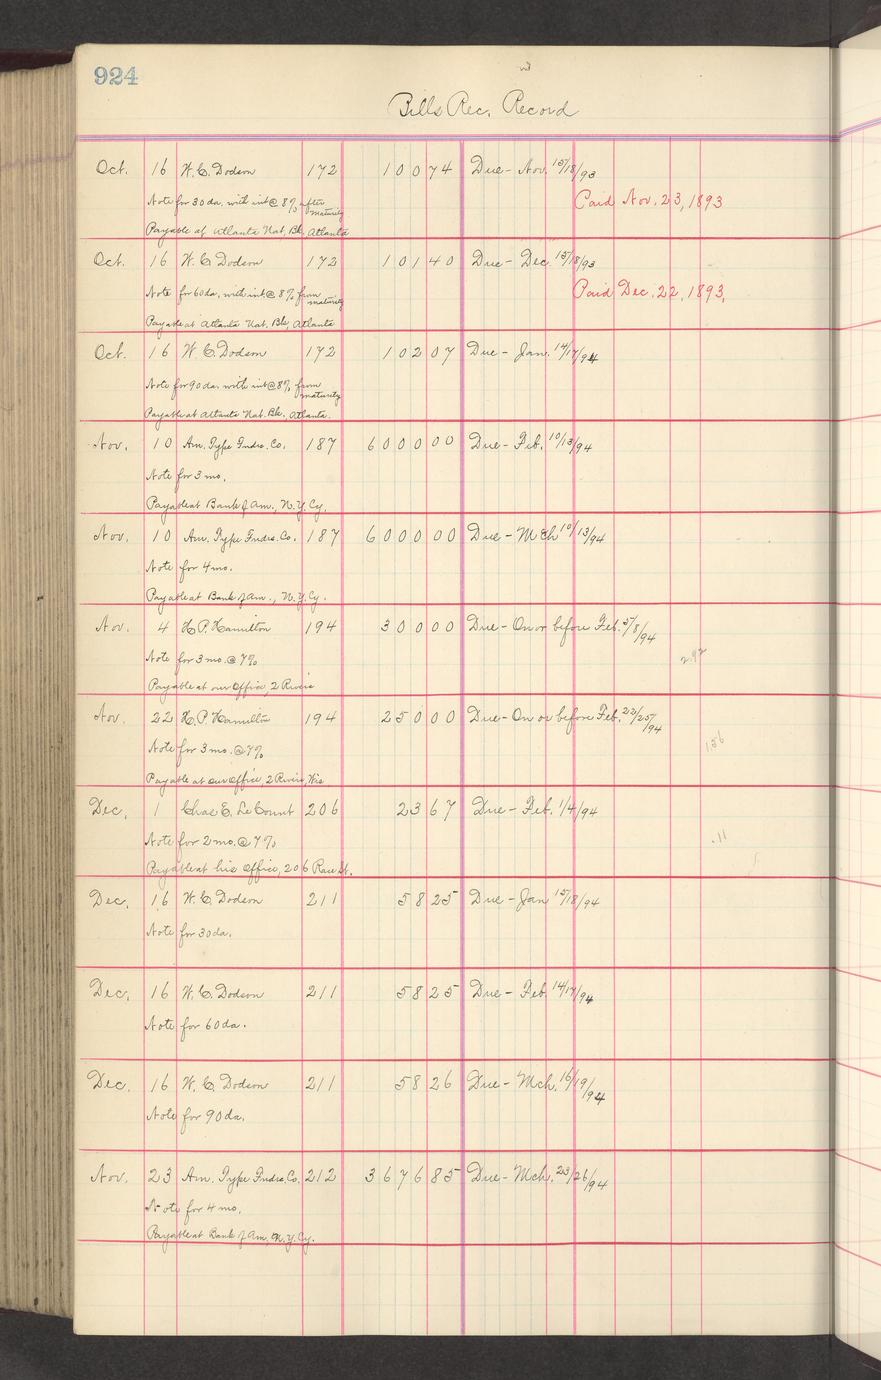 924
Bills Rec. Record
Oct. 16 W. C. Dodson 172 100 74 Due - Nov. 15/18/93
Note for 30 da. with int @ 8% after maturity
Paid Nov. 23, 1893
Payable at Atlanta Nat. Bk, Atlanta
Oct. 16 W. C. Dodson 172 101 40 Due - Dec. 15/18/93
Note for 60 da. with int @ 8% from maturity
Paid Dec. 22, 1893,
Payable at Atlanta Nat. Bk, Atlanta
Oct. 16 W. C. Dodson 172 102 07 Due - Jan. 14/17/94
Note for 90 da. with int @ 8% from maturity
Payable at Atlanta Nat. Bk. Atlanta.
Nov. 10 Am. Type Fndrs. Co. 187 6000 00 Due - Feb. 10/13/94
Note for 3 mo.
Payable at Bank of Am., N. Y. Cy.
Nov. 10 Am. Type Fndrs. Co. 187 6000 00 Due - Mch 10/13/94
Note for 4 mo.
Payable at Bank of Am., N. Y. Cy.
Nov. 4 H. P. Hamilton 194 300 00 Due - On or before Feb. 5/8/94
Note for 3 mo. @ 7%
2.92
Payable at our Office, 2 Rivers
Nov. 22 H. P. Hamilton 194 250 00 Due - On or before Feb. 22/25/94
Note for 3 mo. @ 7%
1.56
Payable at our Office, 2 Rivers, Wis
Dec. 1 Chas E. Le Count 206 23 67 Due - Feb. 1/4/94
Note for 2 mo. @ 7%
.11
Payable at his Office, 206 Race St.
Dec. 16 W. C. Dodson 211 58 25 Due - Jan 15/18/94
Note for 30 da.
Dec. 16 W. C. Dodson 211 58 25 Due - Feb. 14/17/94
Note for 60 da.
Dec. 16 W. C. Dodson 211 58 26 Due - Mch. 16/19/94
Note for 90 da.
Nov. 23 Am. Type Fndrs. Co. 212 3676 85 Due - Mch. 23/26/94
Note for 4 mo.
Payable at Bank of Am, N. Y. Cy.